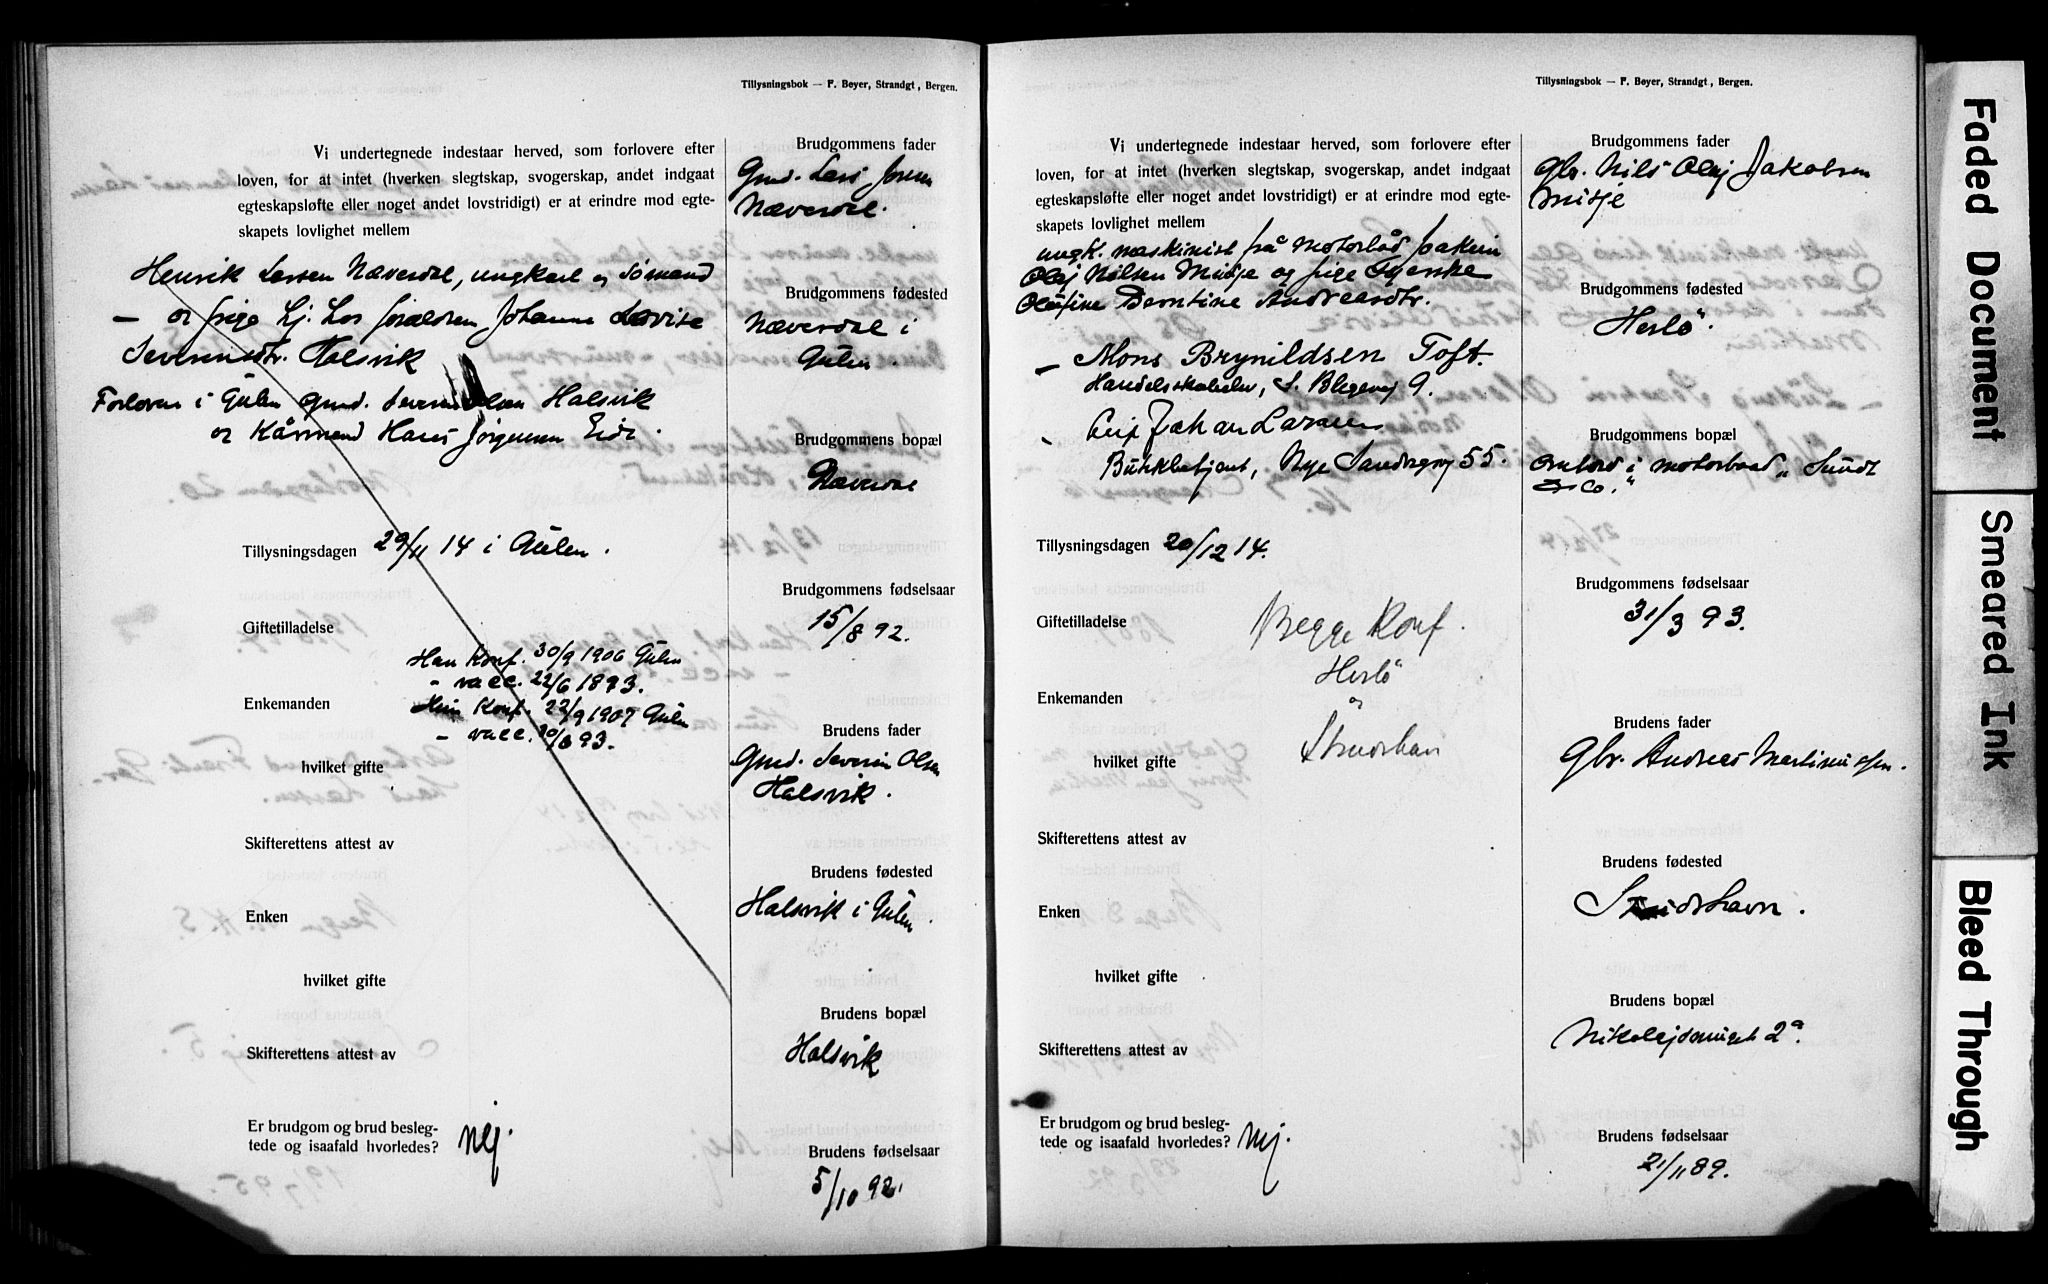 Tillysningsbok — F. Beyer, Strandgt, Bergen.
Vi undertegnede indestaar herved, som forlovere efter
loven, for at intet (hverken slegtskap, svogerskap, andet indgaat
egteskapsløfte eller noget andet lovstridigt) er at erindre mod egte-
skapets lovlighet mellem
Henrik Larsen Næverdal, ungkarl og sømand
— og pige hj. hos forældren Johanne Lovise
Severinsdtr. Halsvik
Forlovere i Gulen Gmd. Severin Olsen Halsvik
og Kårmand Hans Jørgensen Eide.
Tillysningsdagen 29/11 14 i Gulen.
Giftetilladelse
Han Konf. 30/9 1906 Gulen
" vacc. 22/6 1893.
Enkemanden
Hun Konf. 22/9 1907 Gulen
— vacc. 20/6 93.
hvilket gifte
Skifterettens attest av
Enken
hvilket gifte
Skifterettens attest av
Er brudgom og brud besleg-
tede og isaafald hvorledes? Nej.
Brudgommens fader
Gmd. Lars Joren
Næverdal.
Brudgommens fødested
Næverdal i
Gulen.
Brudgommens bopæl
Næverdal
Brudgommens fødselsaar
15/8 92.
Brudens fader
Gmd. Severin Olsen
Halsvik.
Brudens fødested
Halsvik i Gulen.
Brudens bopæl
Halsvik
Brudens fødselsaar
5/10 92.
Tillysningsbok — F. Beyer, Strandgt, Bergen.
Vi undertegnede indestaar herved, som forlovere efter
loven, for at intet (hverken slegtskap, svogerskap, andet indgaat
egteskapsløfte eller noget andet lovstridigt) er at erindre mod egte-
skapets lovlighet mellem
ungk. maskinist på motorbåd Joakim
Olaj Nilsen Misje og pige Gjerske
Olufine Berntine Andreasdtr.
— Mons Brynildsen Toft.
L. Blegevej 9.
Johan Larsen
Butikbetjent, Nye Sandsgvej 55.
Tillysningsdagen 20/12 14.
Giftetilladelse
Begge Konf.
Herlø
Enkemanden
og
hvilket gifte
Skifterettens attest av
Enken
hvilket gifte
Skifterettens attest av
Er brudgom og brud besleg-
tede og isaafald hvorledes? Nej.
Brudgommens fader
Gbr. Nils Olaj Jakobsen
Misje
Brudgommens fødested
Herlø.
Brudgommens bopæl
Ombord i motorbaad „Sundt
& Co."
Brudgommens fødselsaar
31/3 93.
Brudens fader
Gbr. Andreas Martinussen.
Brudens fødested
Brudens bopæl
Nikolejsmuget 2a.
Brudens fødselsaar
21/11 89.
Faded Document
Smeared Ink
Bleed Through